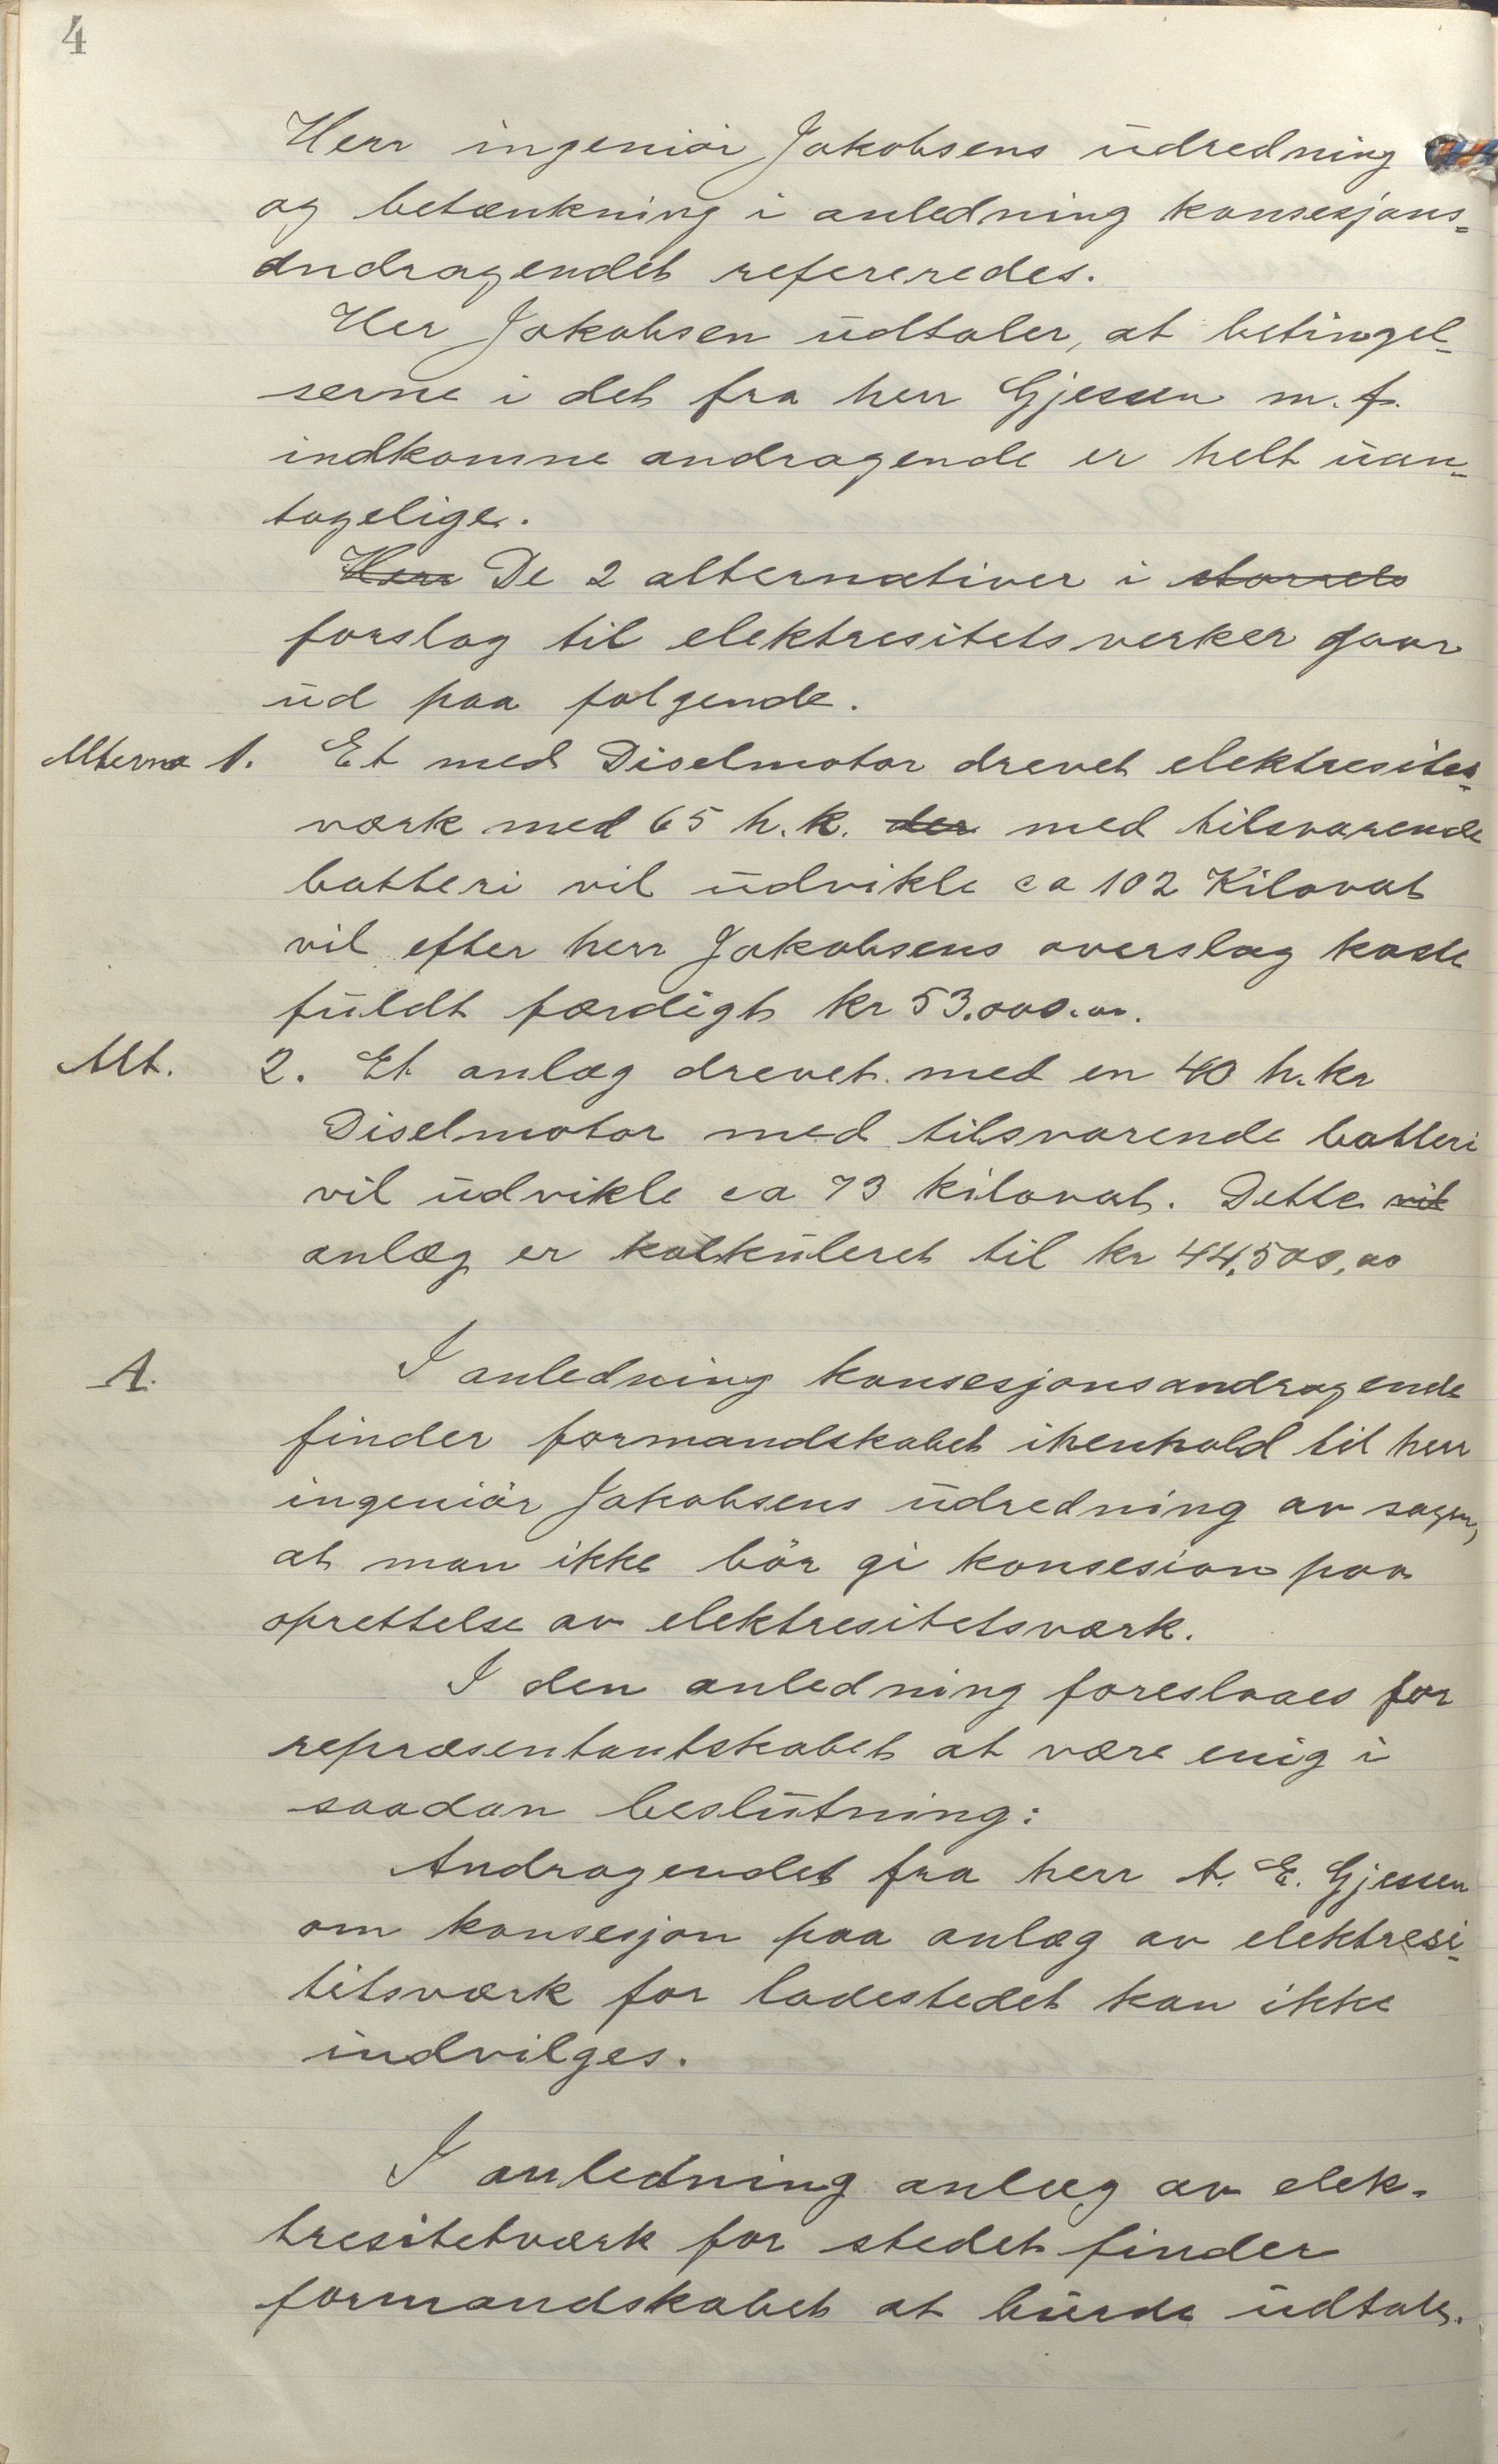 4
Herr ingeniör Jakobsens udredning
og betænkning i anledning konsesjons-
andragendet refereredes.
Her Jakobsen udtaler, at betingel-
serne i det fra herr Gjessen m. fl.
indkomne andragende er helt uan-
tagelige.
Herr De 2 alternativer i
forslag til elektresitetsverker gaar
ud paa følgende.
Alterna 1. Et med Diselmotor drevet elektresites-
værk med 65 h.k. der med tilsvarende
batteri vil udvikle ca 102 Kilovat
vil efter herr Jakobsens overslag koste
fuldt færdigt kr 53.000.00.
Alt. 2. Et anlæg drevet med en 40 h.kr
Diselmotor med tilsvarende batteri
vil udvikle ca 73 kilovat. Dette vil
anlæg er kalkuleret til kr 44,500,00
A. I anledning konsesjonsandragende
finder formandskabet ihenhold til herr
ingeniör Jakobsens udredning av sagen,
at man ikke bör gi konsesion paa
oprettelse av elektresitetsværk.
I den anledning foreslaaes for
repræsentantskabet at være enig i
saadan beslutning:
Andragendet fra herr A. E. Gjessen
om konsesjon paa anlæg av elektresi-
titsværk for ladestedet kan ikke
indvilges.
I anledning anlæg av elek-
tresitetværk for stedet finder
formandskabet at burde udtale.